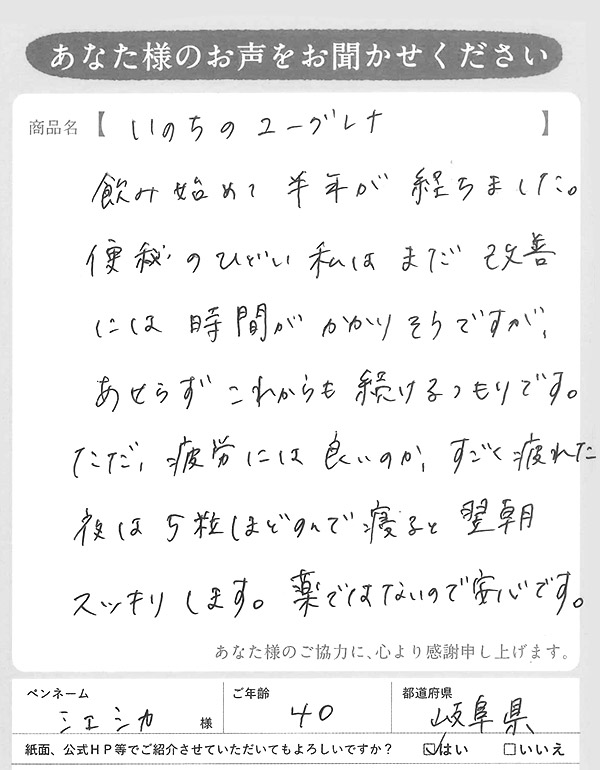 あなた様のお声をお聞かせください
商品名【いのちのユーグレナ】
飲み始めて半年が経ちました。
便秘のひどい私はまだ改善
には時間がかかりそうですが、
あせらずこれからも続けるつもりです。
ただ、疲労には良いのか、すごく疲れた
夜は5粒ほどのんで寝ると翌朝
スッキリします。薬ではないので安心です。
あなた様のご協力に、心より感謝申し上げます。
ペンネーム ご年齢 都道府県
シェシカ 様 40 岐阜県
紙面、公式HP等でご紹介させていただいてもよろしいですか? ☑はい □いいえ